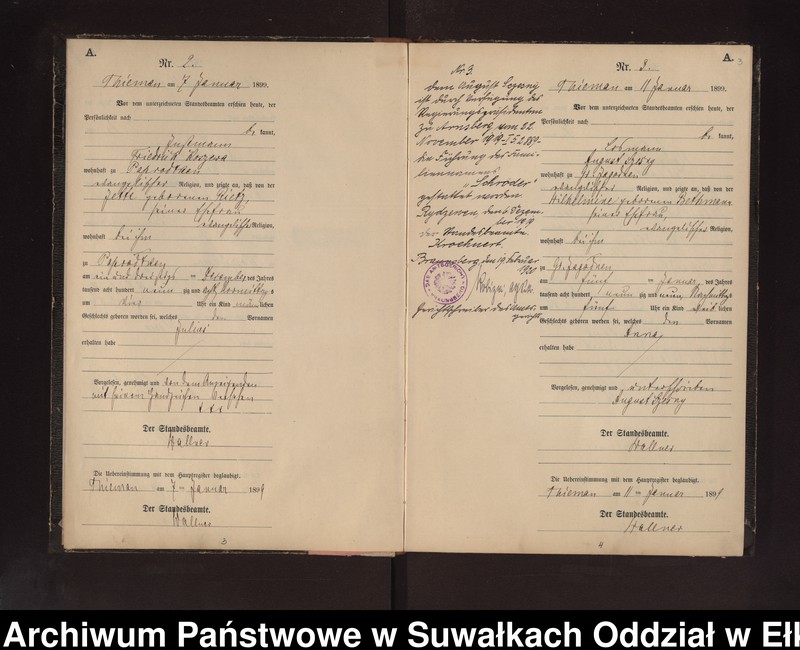 A.
Nr. 2.
Thieman am 7 Januar 1899.
Vor dem unterzeichneten Standesbeamten erschien heute, der
Persönlichkeit nach
kannt,
Instmann
Friedrich
wohnhaft zu Paprodtken
evangelischer Religion, und zeigte an, daß von der
Jette geborenen
seiner Ehefrau
evangelischer Religion,
wohnhaft bei ihm
zu Paprodtken
am ein und dreißigs ten Dezember des Jahres
tausend acht hundert neun zig und acht Vormittags
um vier Uhr ein Kind männlichen
Geschlechts geboren worden sei, welches den Vornamen
Julius
erhalten habe
Vorgelesen, genehmigt und von dem Anzeigenden
mit seinem Handzeichen versehen
+++
Der Standesbeamte.
Wallner
Die Uebereinstimmung mit dem Hauptregister beglaubigt.
Thieman am 7 ten Januar 1899
Der Standesbeamte.
Wallner
3
Nr 3.
Dem August Sczesny
ist durch Verfügung des
Regierungspräsidenten
zu Arnsberg vom 22
November 1919
die Führung des Fami-
liennamens
"Schröder"
gestattet worden
Rydzewen, den 6 Dezem-
ber 1919
Der Standesbeamte
Krochnert.
den 19 Februar
1920
Gerichtsschreiber des Amts-
gerichts
A.
3
Nr. 3.
Thieman am 11 Januar 1899.
Vor dem unterzeichneten Standesbeamten erschien heute, der
Persönlichkeit nach
be kannt,
Losmann
August Sczesny
wohnhaft zu Gr. Jagodnen
evangelischer Religion, und zeigte an, daß von der
Wilhelmine geborenen Bethmann
seiner Ehefrau,
evangelischer Religion,
wohnhaft bei ihm
zu Gr. Jagodnen
am fünf ten Januar des Jahres
tausend acht hundert neun zig und neun Nachmittags
um fünf Uhr ein Kind weiblichen
Geschlechts geboren worden sei, welches den Vornamen
Anna
erhalten habe
Vorgelesen, genehmigt und unterschrieben
August Sczesny
Der Standesbeamte.
Wallner
Die Uebereinstimmung mit dem Hauptregister beglaubigt.
Thieman am 11 ten Januar 1899
Der Standesbeamte.
Wallner
4
Archiwum Państwowe w Suwałkach Oddział w Ełk